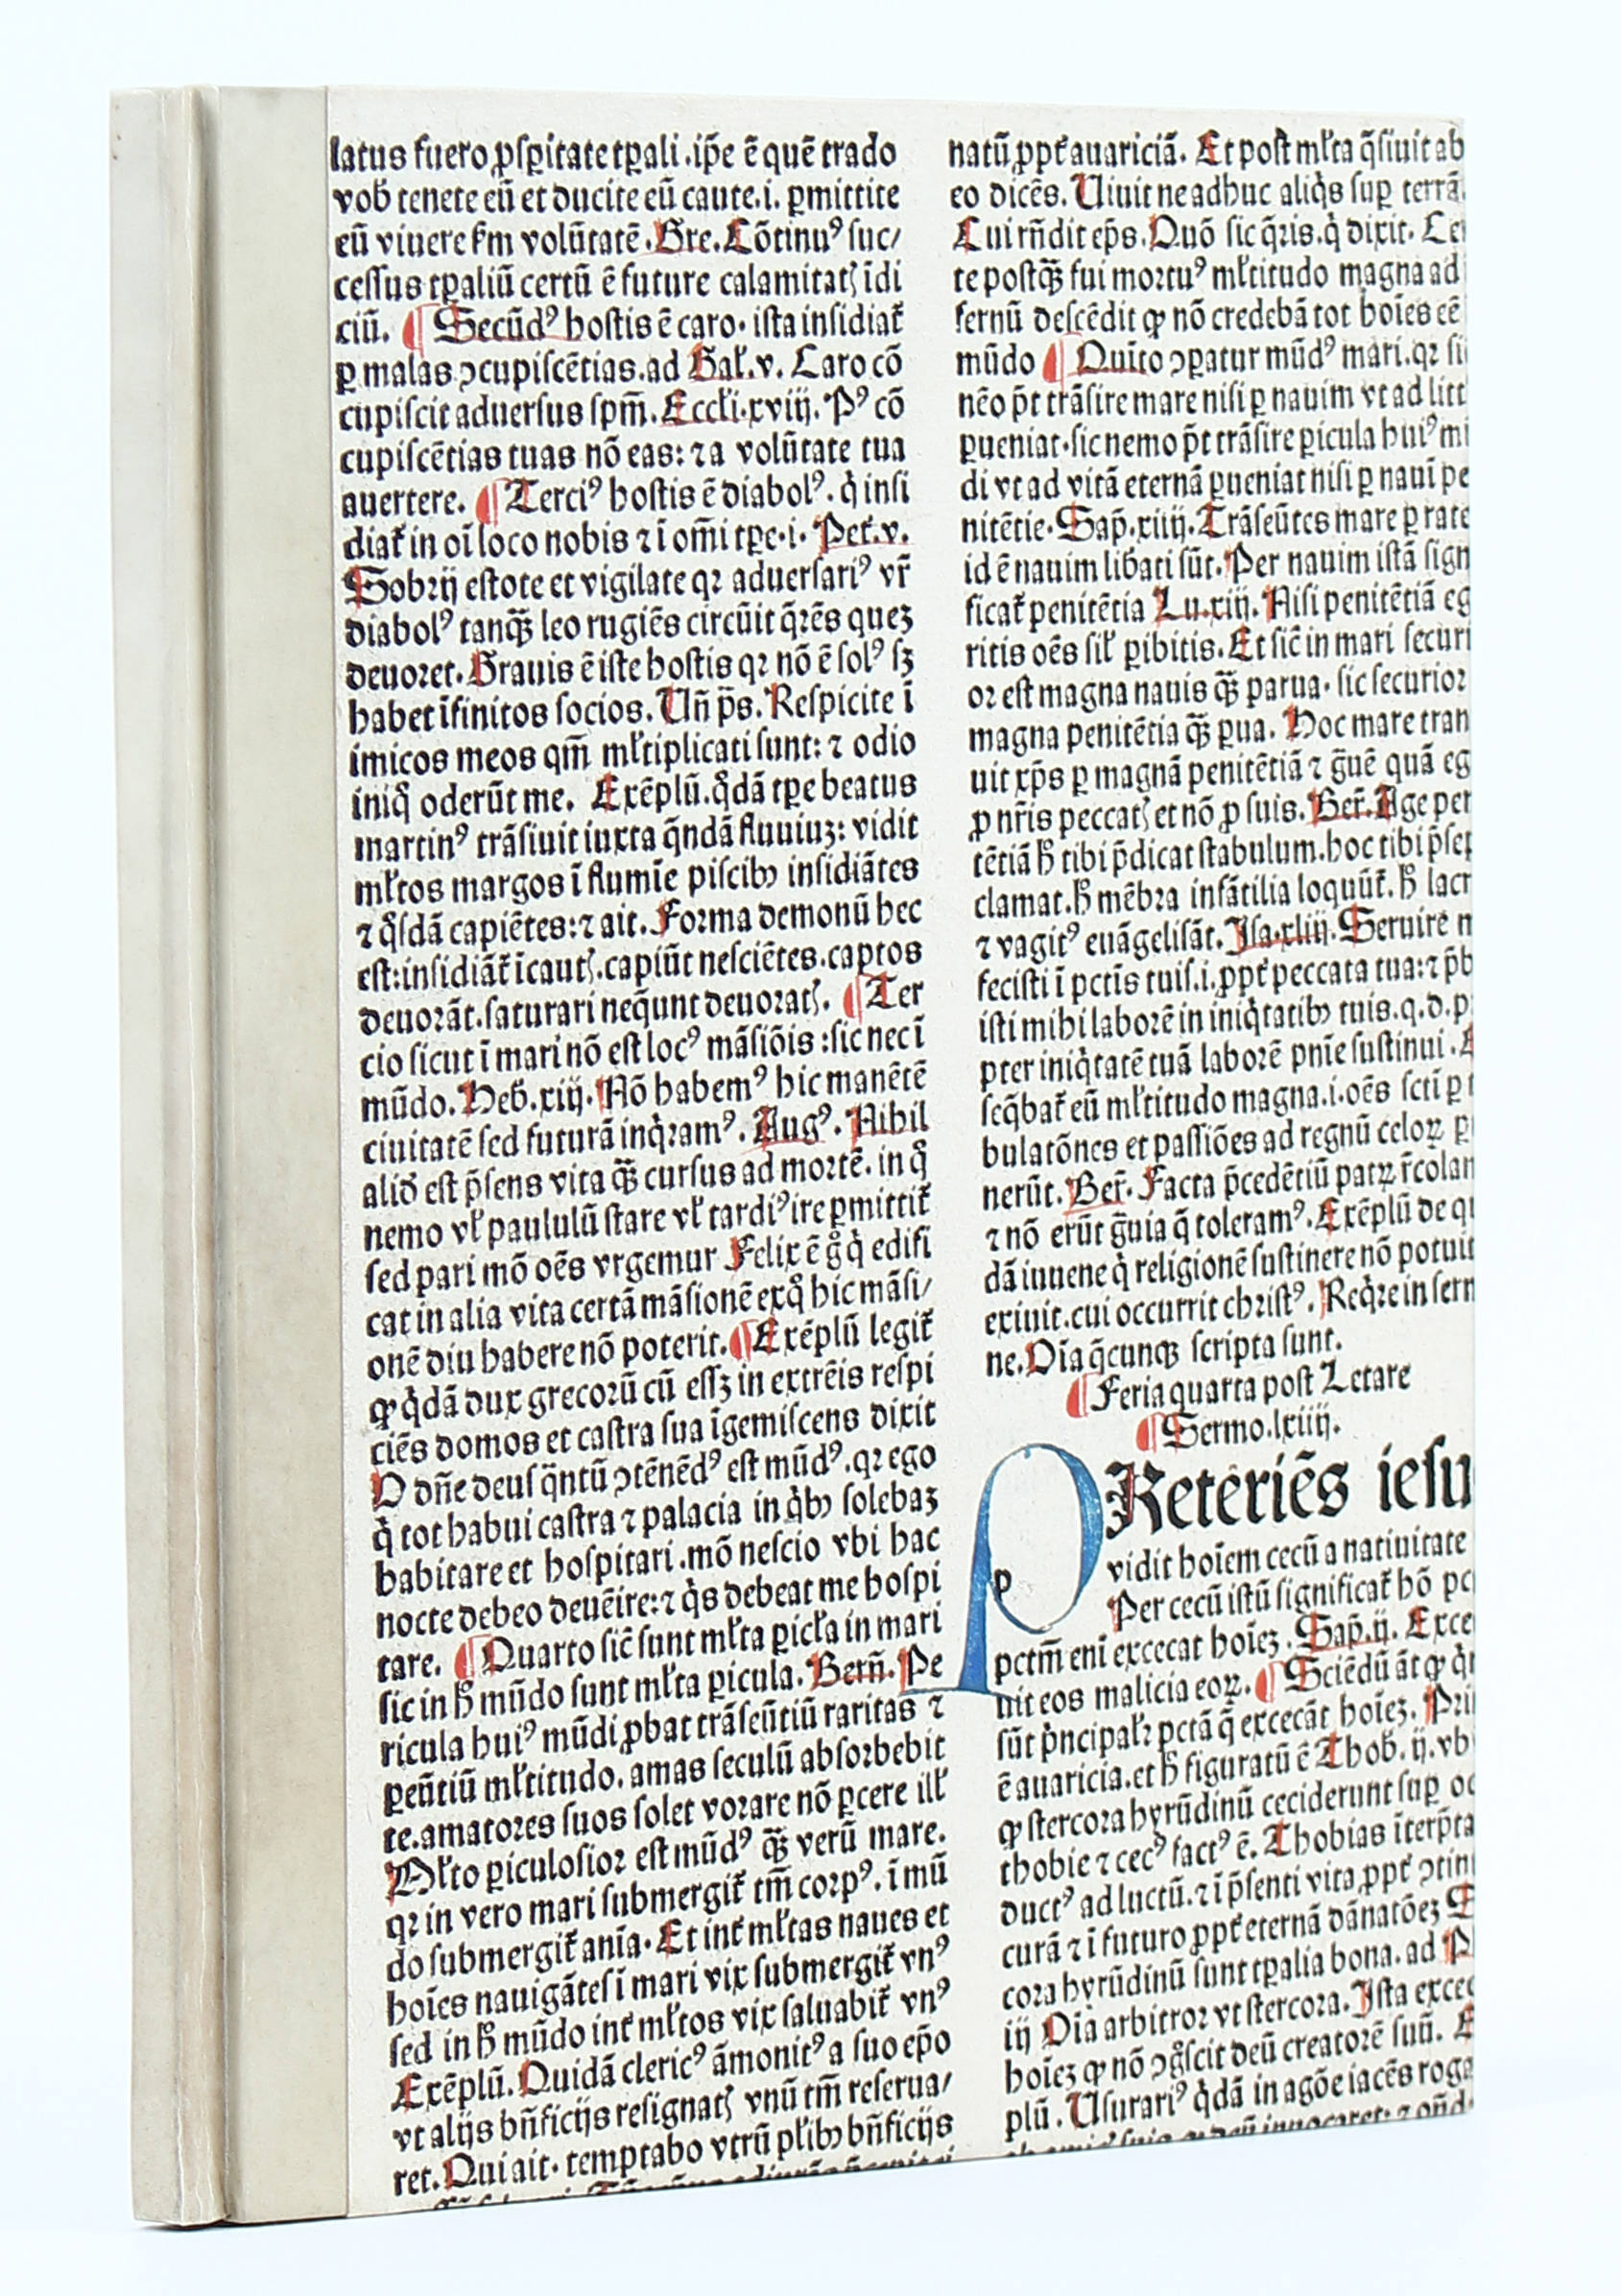 latus fuero ꝓſꝑitate tꝑali .ip̄e ē quē trado
vob tenete eū et ducite eū caute.i. ꝑmittite
eū viuere ẜm volūtatē .Gre. Cōtinuꝰ ſuc/
ceſſus tꝑaliū certū ē future calamitatꝭ īdi
ciū. ¶ Secūdꝰ hoſtis ē caro. iſta inſidiat᷑
ꝑ malas ꝯcupiſcētias.ad Gal̵.v. Caro cō
cupiſcit aduerſus ſpm̄. Eccl̵i.xviij. Pꝰ cō
cupiſcētias tuas nō eas: ⁊ a volūtate tua
auertere. ¶ Terciꝰ hoſtis ē diabolꝰ. q̇ inſi
diat᷑ in oī loco nobis ⁊ ī om̄i tꝑe.i. Pet᷑.v.
Sobrij eſtote et vigilate qꝛ aduerſariꝰ vr̄
diabolꝰ tanꝙ̄ leo rugiēs circūit q̄rēs queꝫ
deuoret. Grauis ē iſte hoſtis qꝛ nō ē ſolꝰ ſꝫ
habet īfinitos ſocios. Un̄ p̄s. Reſpicite ī
imicos meos qm̄ ml̵tiplicati ſunt: ⁊ odio
iniq̊ oderūt me. Exēplū. q̊dā tꝑe beatus
martinꝰ trāſiuit iuxta q̄ndā fluuiuꝫ: vidit
ml̵tos margos ī flumīe piſcibꝫ inſidiātes
⁊ q̊ſdā capiētes: ⁊ ait. Forma demonū hec
eſt: inſidiāt᷑ īcautꝭ. capiūt neſciētes. captos
deuorāt. ſaturari neq̄unt deuoratꝭ. ¶ Ter
cio ſicut ī mari nō eſt locꝰ māſiōis : ſic nec ī
mūdo. Heb̄.xiij. Nō habemꝰ hic manētē
ciuitatē ſed futurā inq̇ramꝰ. Augꝰ. Nihil
aliđ eſt p̄ſens vita ꝙ̄ curſus ad mortē. in q̊
nemo vl̵ paululū ſtare vl̵ tardiꝰ ire ꝑmittit᷑
ſed pari mō oēs vrgemur Felix ē g̊ q̇ edifi
cat in alia vita certā māſionē ex q̊ hic māſi/
onē diu habere nō poterit. ¶ Exēplū legit᷑
ꝙ q̇dā dux grecorū cū eſſꝫ in extrēis reſpi
ciēs domos et caſtra ſua īgemiſcens dixit
O dn̄e deus q̄ntū ꝯtēnēdꝰ eſt mūdꝰ. qꝛ ego
q̇ tot habui caſtra ⁊ palacia in q̇bꝫ ſolebaꝫ
habitare et hoſpitari .mō neſcio vbi hac
nocte debeo deuēire: ⁊ q̇s debeat me hoſpi
tare. ¶ Quarto ſic̄ ſunt ml̵ta ꝑicl̵a in mari
ſic in ħ mūdo ſunt ml̵ta ꝑicula. Bern̄. Pe
ricula huiꝰ mūdi ꝓbat trāſeūtiū raritas ⁊
ꝑeūtiū ml̵titudo. amas ſeculū abſorbebit
te. amatores ſuos ſolet vorare nō ꝑcere ill̵
Ml̵to ꝑiculoſior eſt mūdꝰ ꝙ̄ verū mare.
qꝛ in vero mari ſubmergit᷑ tm̄ corpꝰ. ī mū
do ſubmergit᷑ anīa. Et int᷑ ml̵tas naues et
hoīes nauigātes ī mari vix ſubmergit᷑ vnꝰ
ſed in ħ mūdo int᷑ ml̵tos vix ſaluabit᷑ vnꝰ
Exēplū. Quidā clericꝰ āmonitꝰ a ſuo ep̄o
vt alijs bn̄ficijs reſignatꝭ vnū tm̄ reſerua/
ret. Qui ait. temptabo vtrū pl̵ibꝫ bn̄ficijs
natū ꝓpt᷑ auariciā. Et poſt ml̵ta q̄ſiuit ab
eo dicēs. Uiuit ne adhuc aliq̇s ſuꝑ terrā.
Cui rn̄dit ep̄s. Quō ſic q̄ris. q̇ dixit. Cer
te poſtꝙ̄ fui mortuꝰ ml̵titudo magna ad
fernū deſcēdit ꝙ nō credebā tot hoīes eē
mūdo ¶ Quīto ꝯꝑatur mūdꝰ mari. qꝛ ſi
nēo p̄t trāſire mare niſi ꝑ nauim vt ad litt
ꝑueniat. ſic nemo p̄t trāſire ꝑicula huiꝰ mū
di vt ad vitā eternā ꝑueniat niſi ꝑ nauī pe
nitētie. Sap̄.xiiij. Trāſeūtes mare ꝑ rate
id ē nauim liƀati ſūt. Per nauim iſtā ſign
ficat᷑ penitētia Lu.xiij. Niſi penitētiā eg
ritis oēs ſil̵ ꝑibitis. Et ſic̄ in mari ſecuri
or eſt magna nauis ꝙ̄ parua. ſic ſecurior
magna penitētia ꝙ̄ ꝑua. Hoc mare tran
uit xp̄s ꝑ magnā penitētiā ⁊ g̈uē quā eg
ꝓ nr̄is peccatꝭ et nō ꝓ ſuis. Ber̄. Age per
tētiā ħ tibi p̄dicat ſtabulum. hoc tibi p̄ſep
clamat. ħ mēbra infātilia loquūt᷑. ħ lacr
⁊ vagitꝰ euāgeliſāt. Iſa.xliij. Seruire m
feciſti ī pctīs tuiſ.i. ꝓpt᷑ peccata tua: ⁊ p̄b
iſti mihi laborē in iniq̇tatibꝫ tuis. q.d. p
pter iniq̇tatē tuā laborē pnīe ſuſtinui .
ſeq̄bat᷑ eū ml̵titudo magna.i. oēs ſctī ꝑ t
bulatōnes et paſſiōes ad regnū celoꝝ ꝑ
nerūt. Ber̄. Facta p̄cedētiū patꝝ r̄colan
⁊ nō erūt g̈uia q̄ toleramꝰ. Exēplū de qu
dā iuuene q̇ religionē ſuſtinere nō potuit
exiuit. cui occurrit chriſtꝰ. Req̇re in ſerm
ne. Oīa q̄cunqꝫ ſcripta ſunt.
¶ Feria quarta poſt Letare
¶ Sermo.lxiiij.
PReteriēs ieſu
vidit hoīem cecū a natiuitate
Per cecū iſtū ſignificat᷑ hō pc
pctm̄ enī excecat hoīeꝫ. Sap̄.ij. Exce
uit eos malicia eoꝝ. ¶ Sciēdū āt ꝙ q̇
ſūt ṗncipal̵ꝛ pctā q̄ excecāt hoīeꝫ. Pri
ē auaricia. et ħ figuratū ē Thob̄.ij. vb
ꝙ ſtercora hyrūdinū ceciderunt ſuꝑ oc
thobie ⁊ cecꝰ factꝰ ē. Thobias īterp̄ta
ductꝰ ad luctū. ⁊ ī p̄ſenti vita ꝓpt᷑ ꝯtin
curā ⁊ ī futuro ꝓpt᷑ eternā dānatōeꝫ S
cora hyrūdinū ſunt tꝑalia bona. ad P
iij Oīa arbitror vt ſtercora. Iſta excec
hoīeꝫ ꝙ nō ꝯg̊ſcit deū creatorē ſuū. E
plū. Uſurariꝰ q̇dā in agōe iacēs roga